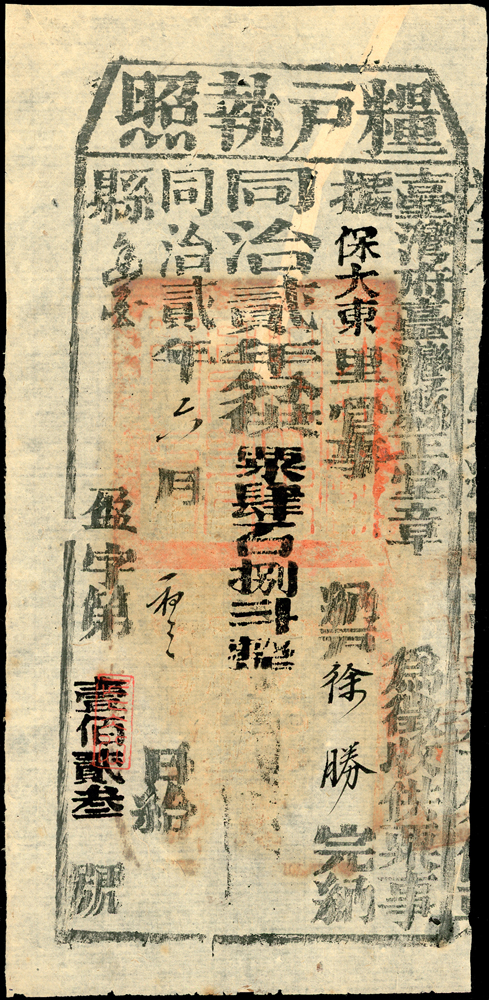 糧戶執照
臺灣府臺灣縣正堂章　為徵收供粟事
據保大東里管事　糧戶徐勝完納
同治貳年份徵粟肆百捌斗
同治貳年六月　日給
縣　盈字第壹佰貳叁號